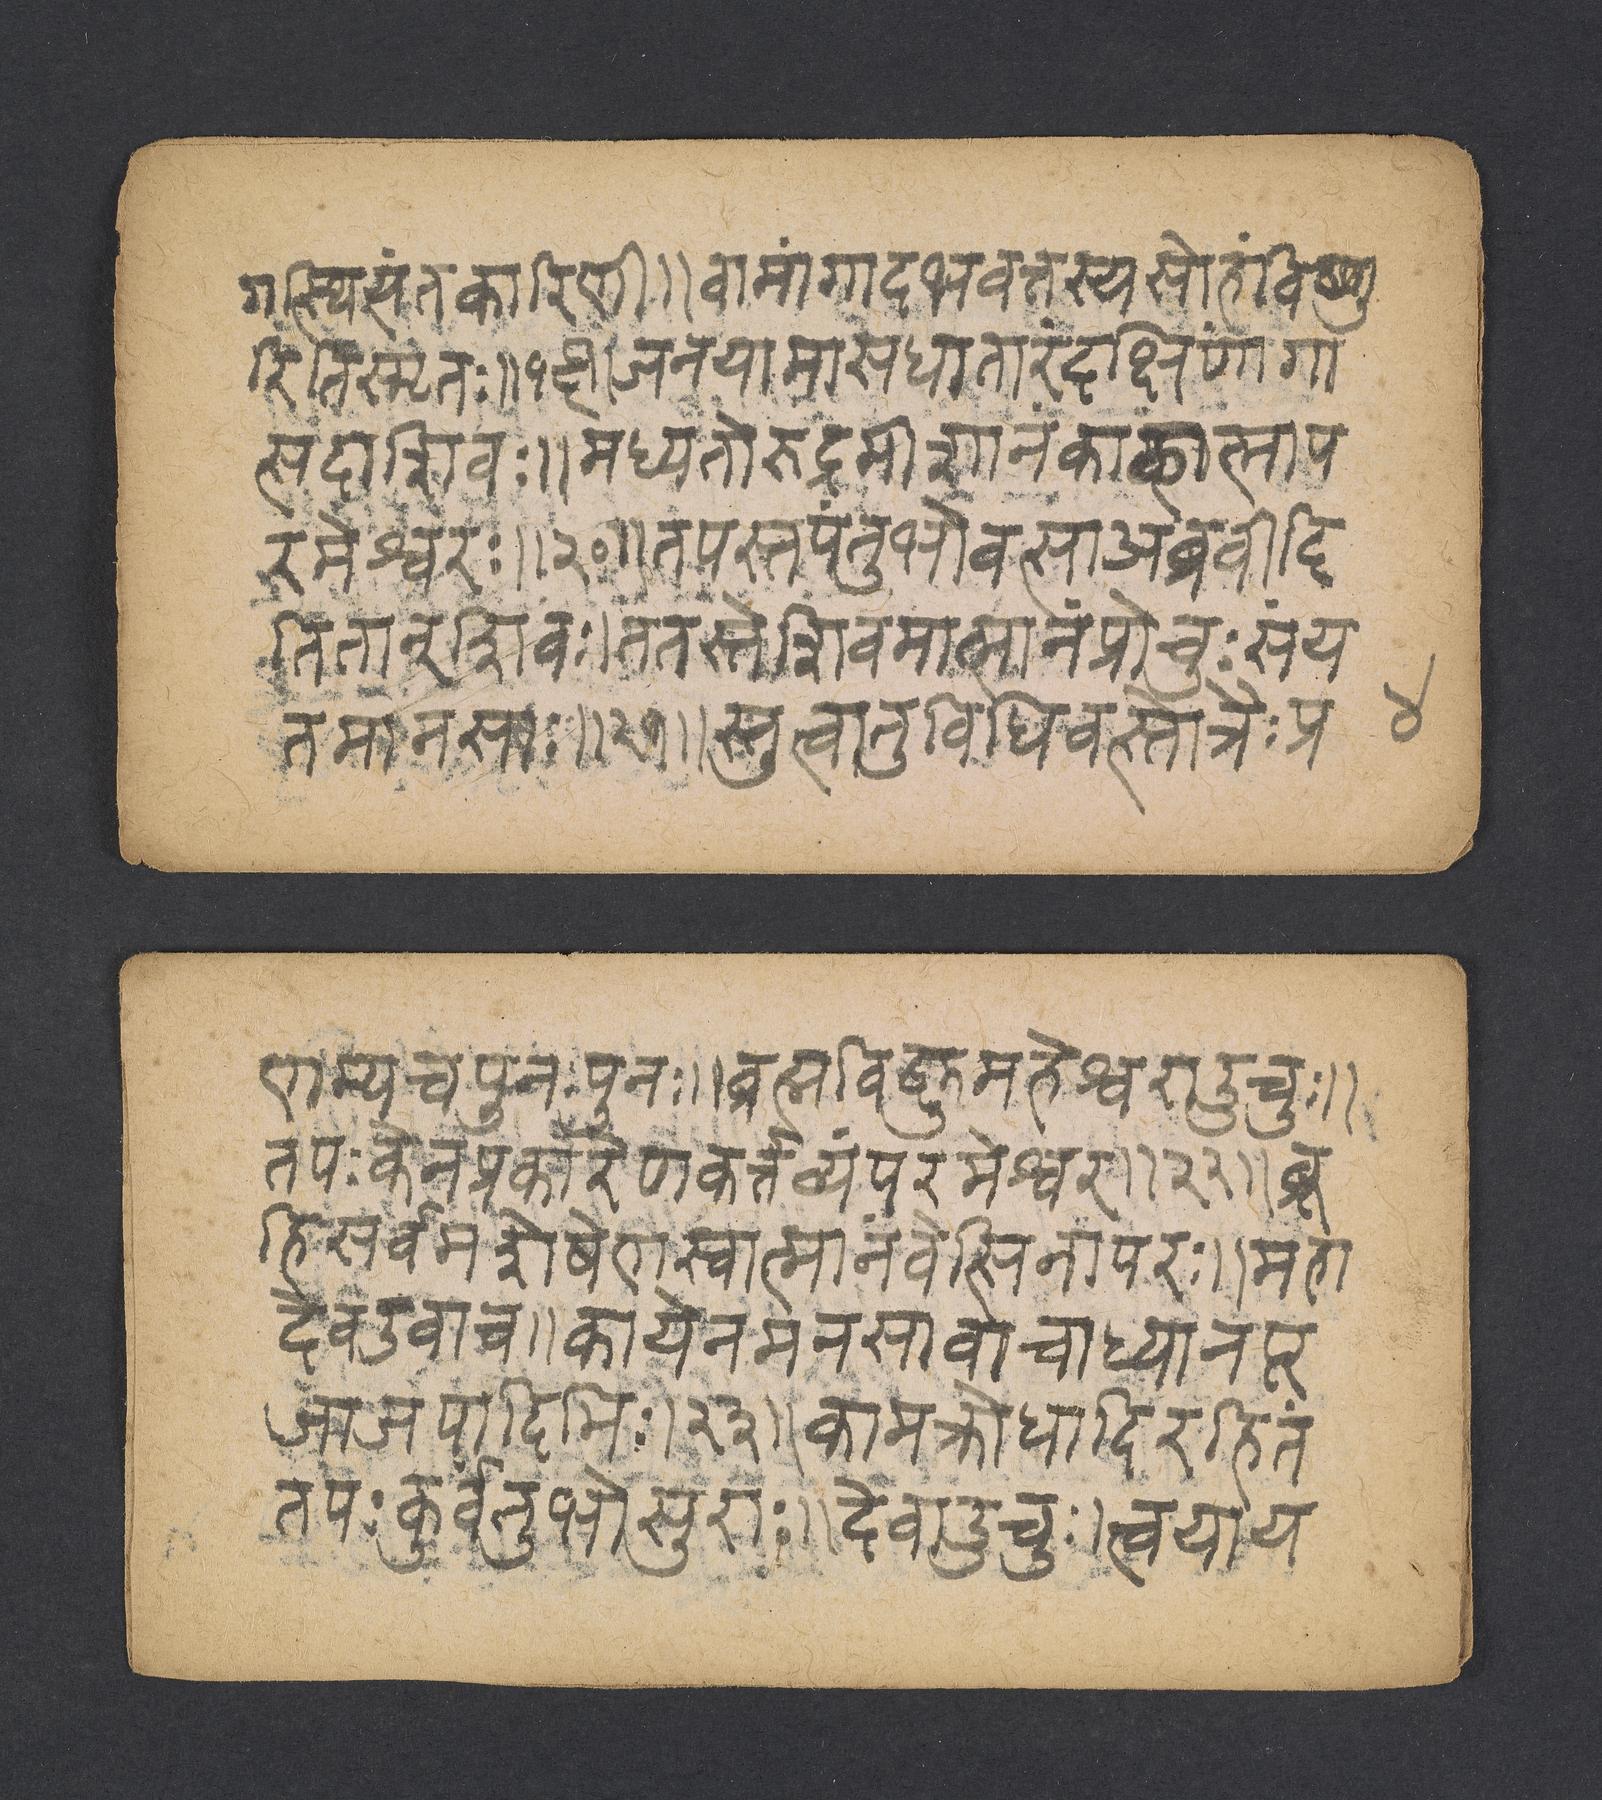 गस्थियंतकारिणी॥वामांगादभवत्तस्यसोहंविष्णु
रितिस्मृतः॥१९॥जनयामासधातारंदक्षिणांगा
त्सदाशिवः॥मध्यतोरुद्रमीशानंकालात्माप
रमेश्वरः॥२०॥तपस्तपंतुभोवत्साअब्रवीदि
तितान्शिवः।ततस्तेशिवमात्मानंप्रोचुःसंय
तमानसाः॥२१॥स्तुत्वातुविधिवस्तोत्रैःप्र
४
णम्यचपुनःपुनः॥ब्रह्मविष्णुमहेश्वराउचुः॥
तपःकेनप्रकारेणकर्त्तव्यंपरमेश्वर॥२२॥ब्रू
हिसर्वमशेषेणस्वात्मानंवेत्सिनापरः॥महा
देवउवाच॥कायेनमनसावाचाध्यानपू
जाजपादिभिः।२३॥कामक्रोधादिरहितं
तपःकुर्वंतुभोसुराः॥देवाउचुः।त्वयाय